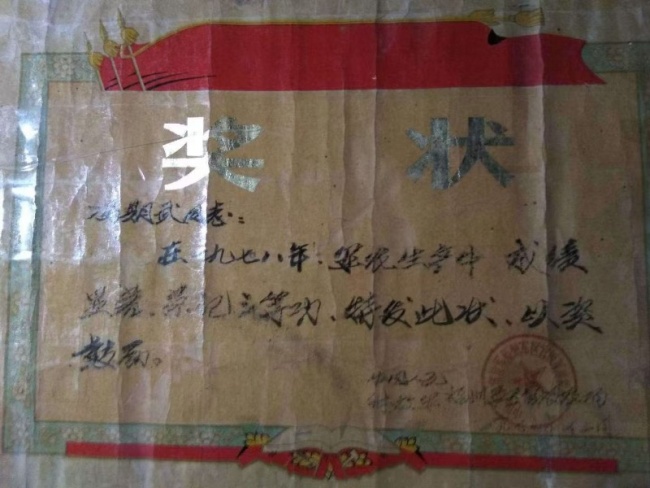 奖状
期武同志：
在一九七八年，军农生产中 成绩
显著、荣记三等功、特发此状、以奖
鼓励。
中国人民
解放军福州军区